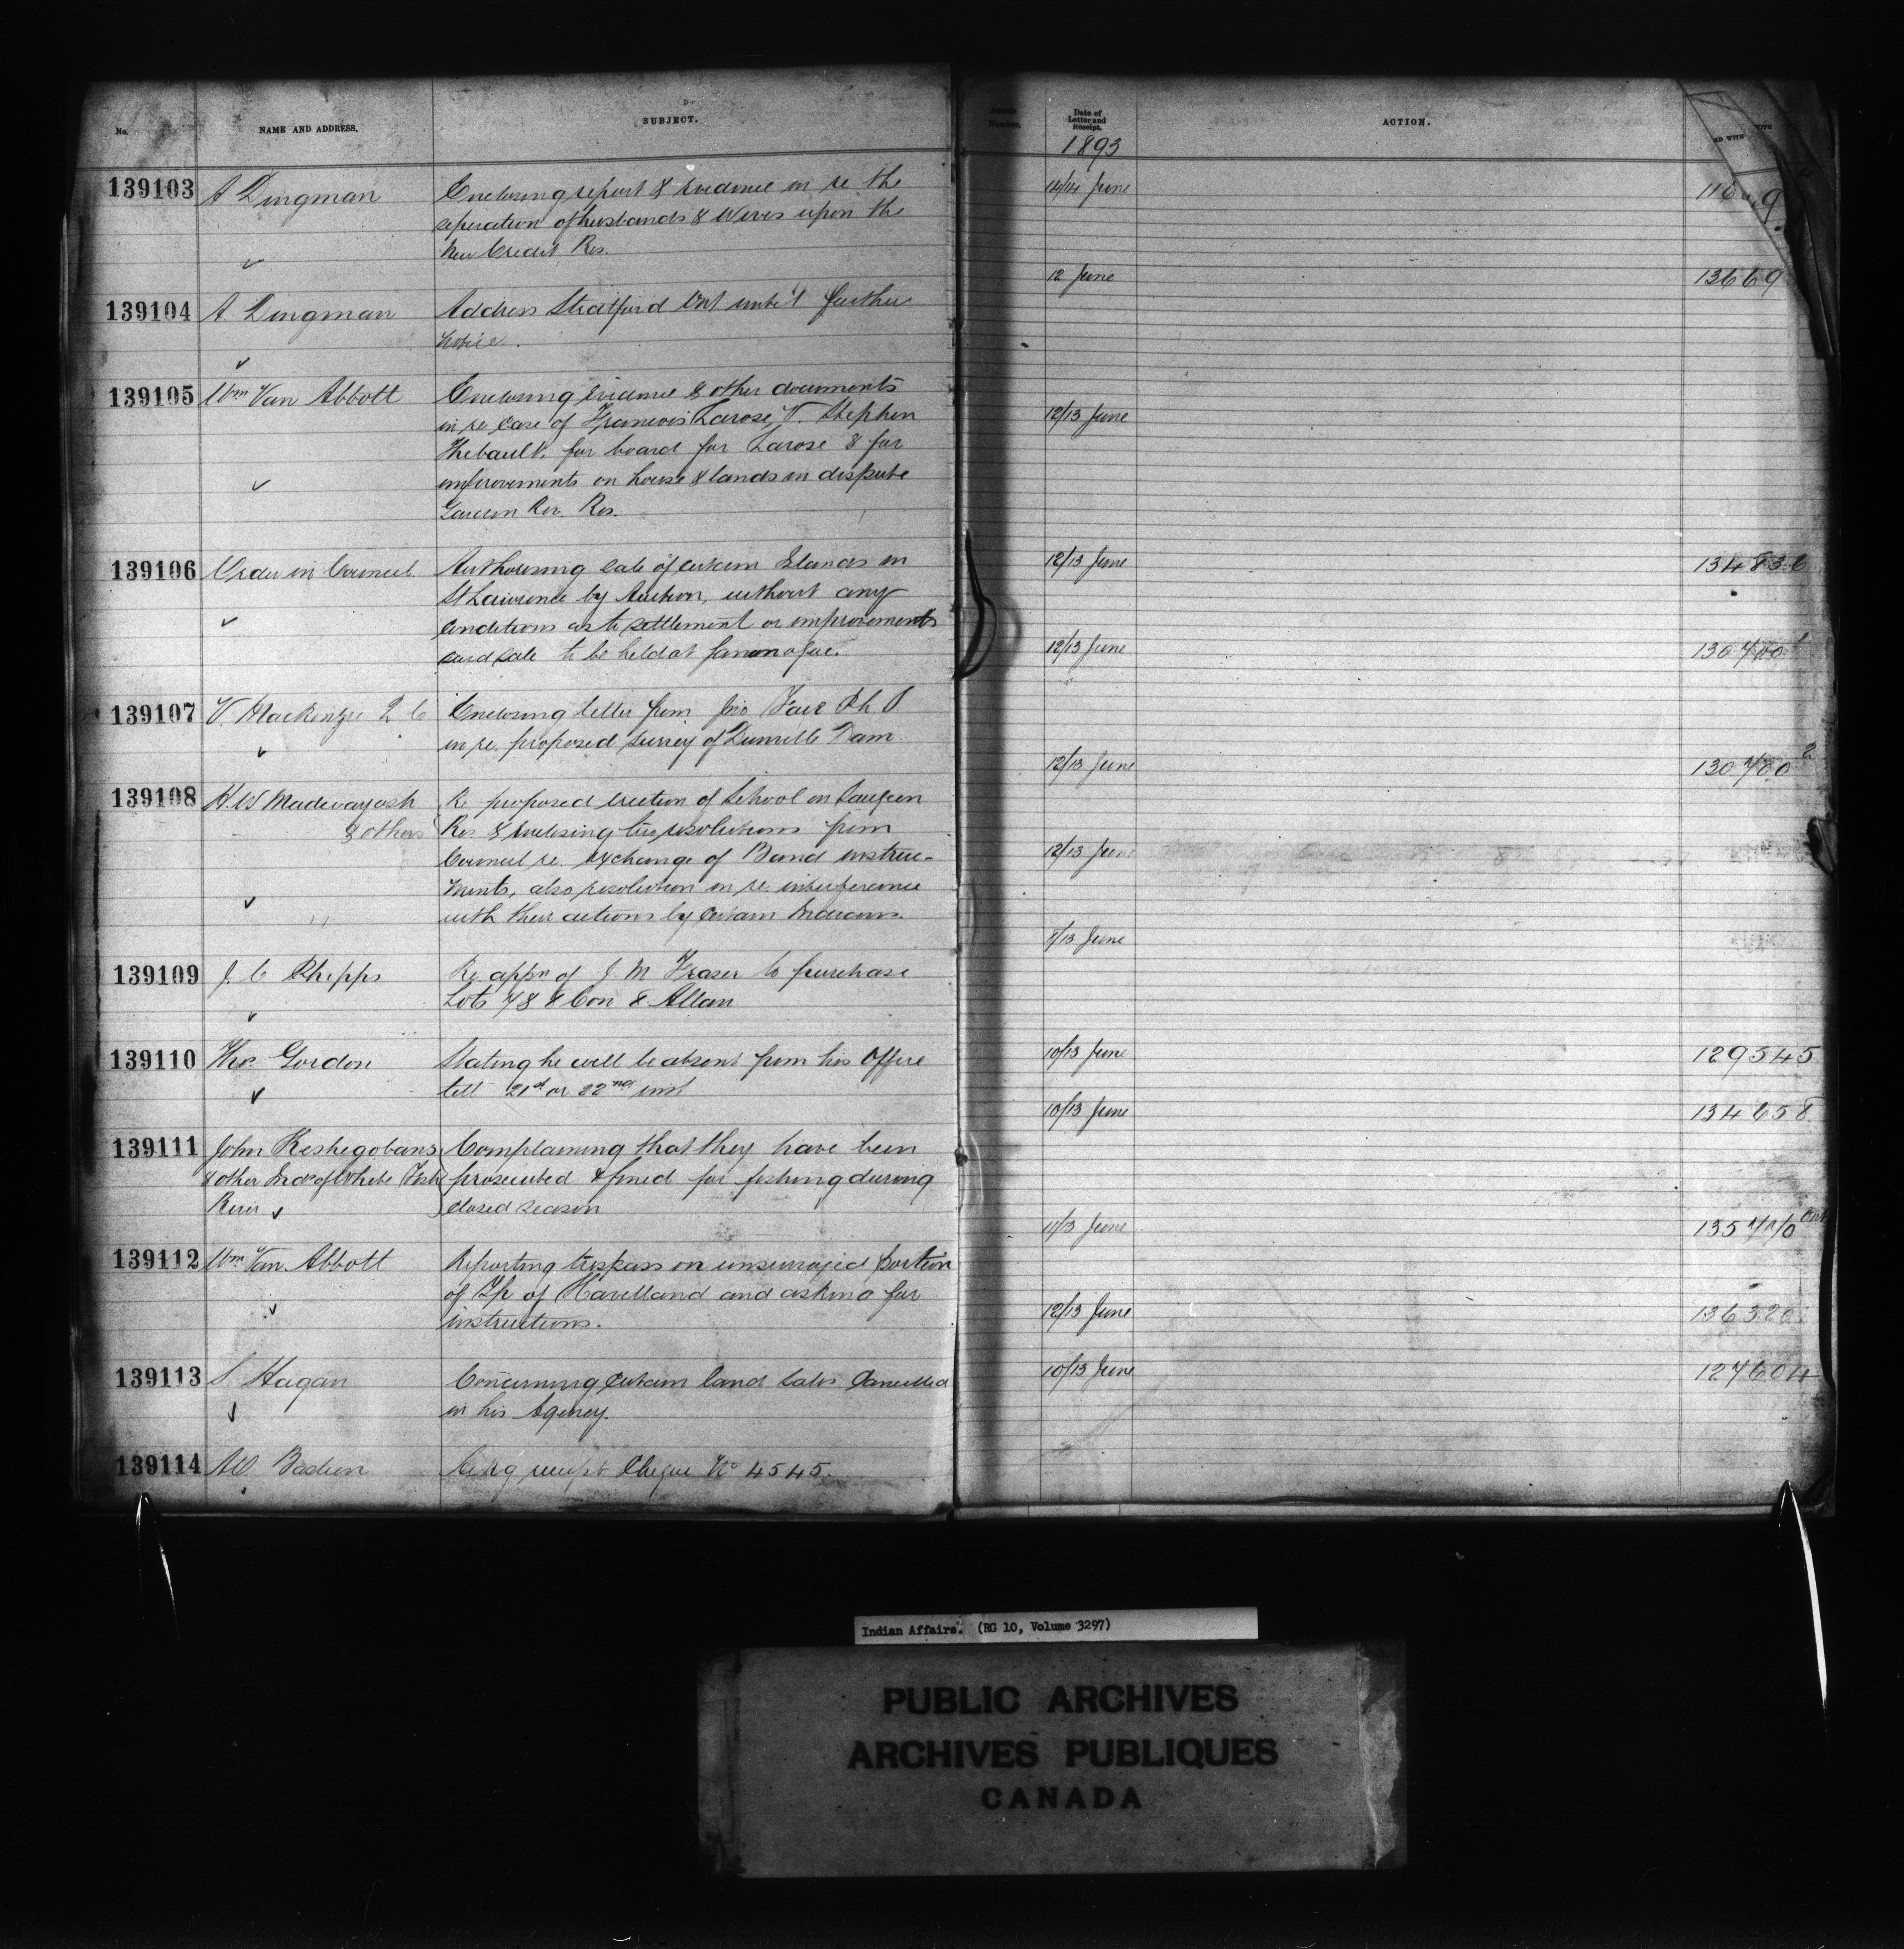 No.
NAME AND ADDRESS.
SUBJECT.
139103
A Dingman
Enclosing report & evidence in re the
seperation of husbands & wives upon the
New Credit Res.
139104
A. Dingman
Address Stratford Ont until further
notice.
139105
Wm Van Abbott
Enclosing evidence & other documents
in re case of Francois Larose, V. Stephen
Thebault, for board for Larose & for
improvements on house & lands in dispute
Garden Riv. Res.
139106
Order in Council
Authorising sale of certain Islands in
St Lawrence by Auction, without any
conditions as to settlement or improvements
said sale to be held at Gananoque.
139107
V. Mackenzie Q C
Enclosing letter from Jno Fair
in re. proposed survey of Dunville Dam.
139108
H. W Madwayosh
& others
Re proposed erection of School on Saugeen
Res & enclosing two resolutions from
Council re. exchange of Band instru-
ments, also resolution in re. interference
with their actions by certain Indians.
139109
J. C Phipps
Re appn of J. M Fraser to purchase
Lots 7 & 8 Con 8. Allan
139110
Thos. Gordon
Stating he will be absent from his Office
till 21st or 22nd inst
139111
John Keshegobans
& other Inds of White Fish
River
Complaining that they have been
prosecuted & fined for fishing during
closed season
139112
Wm Van Abbott
Reporting trespass on unsurveyed portion
of Tp of Havelland and asking for
instructions.
139113
S. Hagan
Concerning certain land sales Cancelled
in his Agency.
139114
A.O. Bastien
Ackg receipt Cheque No 4545.
Number.
Date of
Letter and
Receipt.
ACTION.
WITH
1893
14/14 June
12 June
13669
12/13 June
12/13 June
134836
12/13 June
130700 1
12/13 June
130700 2
12/13 June
8/13 June
10/13 June
129545
10/13 June
134658
11/13 June
12/13 June
136320
10/13 June
127604
Indian Affairs. (RG 10, Volume 3297)
PUBLIC ARCHIVES
ARCHIVES PUBLIQUES
CANADA